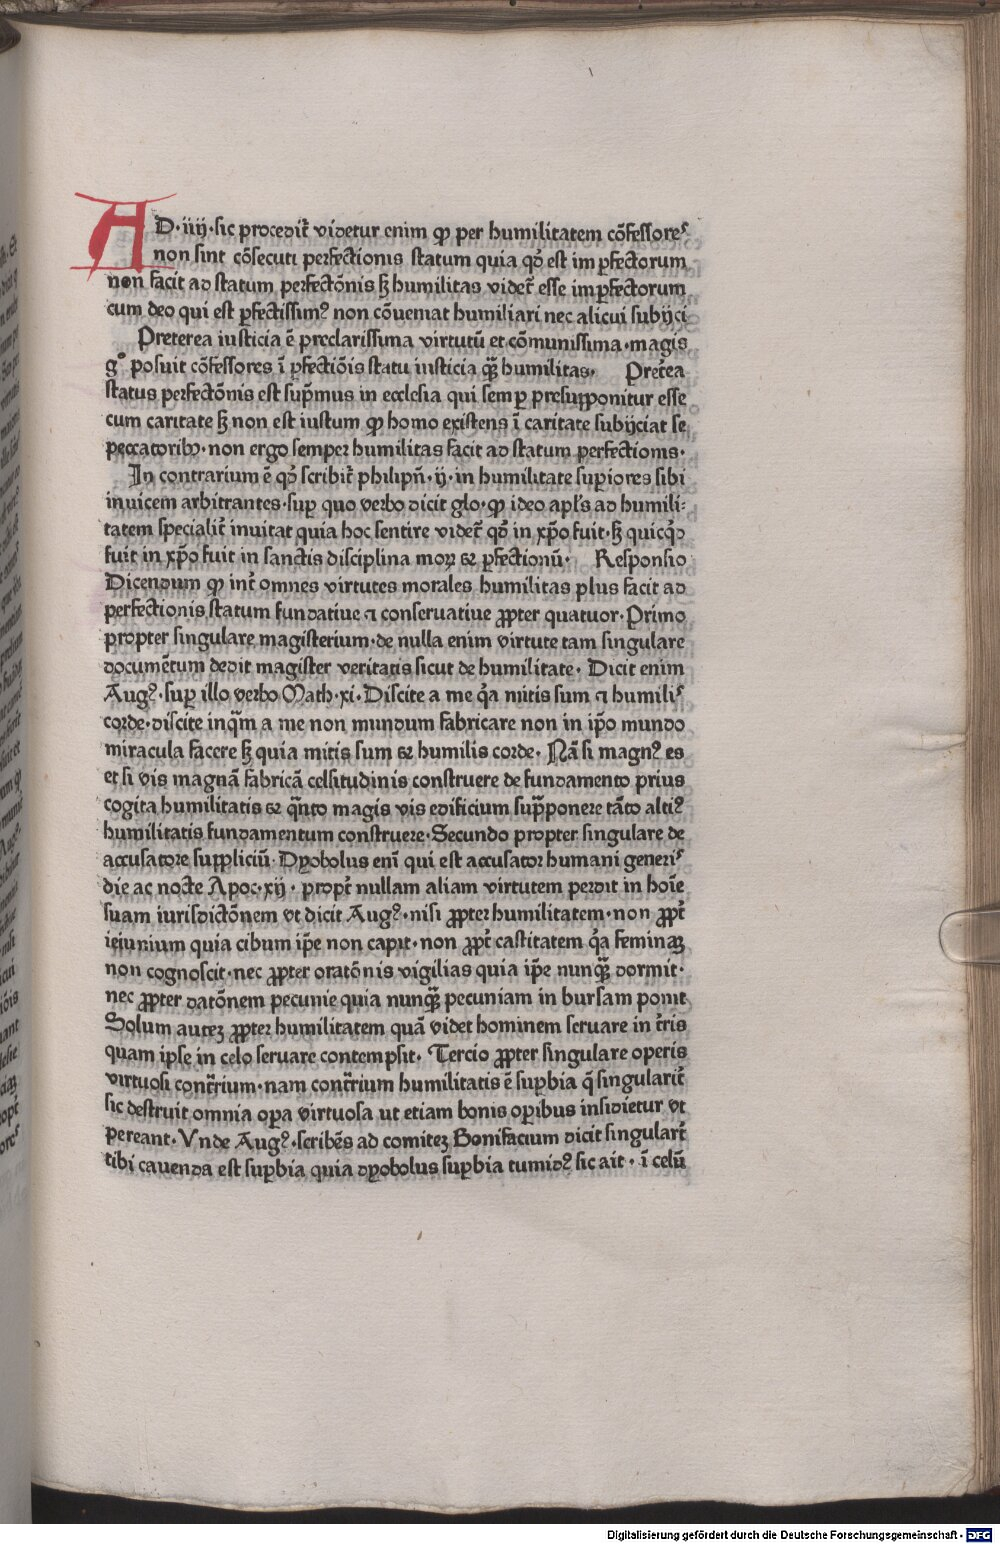 AD·iiij·sic procedit᷑ videtur enim ꝙ per humilitatem cõfessoreˢ
non sint cõsecuti perfectionis statum quia qđ est im ꝑfectorum
non facit ad statum perfectõnis sꝫ humilitas videt᷑ esse imꝑfectorum
cum deo qui est ꝑfectissimꝰ non cõueniat humiliari nec alicui subijci
Preterea iusticia ē preclarissima virtutū et cõmunissima·magis
gͦ posuit cõfessores ī ꝑfectiõis statu iusticia qꝫ̃ humilitas· Pret᷑ea
status perfectõnis est sup̃mus in ecclesia qui semꝑ presupponitur esse
cum caritate sꝫ non est iustum ꝙ homo existens ī caritate subijciat se
peccatoribꝰ·non ergo semper humilitas facit ad statum perfectionis·
In contrarium ē qđ scribit᷑ philipñ·ij·in humilitate suꝑiores sibi
inuicem arbitrantes·suꝑ quo verbo dicit glo·ꝙ ideo apl's ad humili⸗
tatem specialit᷑ inuitat quia hoc sentire videt᷑ qđ in xp̃o fuit·sꝫ quicqͥd
fuit in xp̃o fuit in sanctis disciplina moꝝ ⁊ ꝑfectionū· Responsio
Dicendum ꝙ int᷑ omnes virtutes morales humilitas plus facit ad
perfectionis statum fundatiue ⁊ conseruatiue ꝓpter quatuor·Primo
propter singulare magisterium·de nulla enim virtute tam singulare
documētum dedit magister veritatis sicut de humilitate· Dicit enim
Augꝰ·suꝑ illo verbo Math·xi·Discite a me qͣa mitis sum ⁊ humiliˢ
corde·discite inqͣm a me non mundum fabricare non in ip̃o mundo
miracula facere sꝫ quia mitis sum ⁊ humilis corde· Nā si magnꝰ es
et si vis magnā fabricā celsitudinis construere de fundamento prius
cogita humilitatis ⁊ qͣnto magis vis edificium sup̃ponere tāto altiꝰ
humilitatis fundamentum construere·Secundo propter singulare de
accusatore suppliciū· Dyobolus enī qui est accusator humani generiˢ
die ac nocte Apoc·xij· propt᷑ nullam aliam virtutem perdit in hoīe
suam iurisdictõnem vt dicit Augꝰ·nisi ꝓpter humilitatem·non ꝓpt᷑
ieiunium quia cibum ip̃e non capit·non ꝓpt᷑ castitatem qͣa feminaꝫ
non cognoscit·nec ꝓpter oratõnis vigilias quia ip̃e nunqꝫ̃ dormit·
nec ꝓpter datõnem pecunie quia nunqꝫ̃ pecuniam in bursam ponit
Solum auteꝫ ꝓpter humilitatem quā videt hominem seruare in t᷑ris
quam ipse in celo seruare contempsit· Tercio ꝓpter singulare operis
virtuosi cont᷑rium·nam cont᷑rium humilitatis ē suꝑbia q̃ singularit᷑
sic destruit omnia oꝑa virtuosa ut etiam bonis oꝑibus insidietur vt
pereant·Vnde Augꝰ·scribēs ad comiteꝫ Bonifacium dicit singulart᷑
tibi cauenda est suꝑbia quia dyobolus suꝑbia tumidꝰ sic ait·ī celū
Digitalisierung gefördert durch die Deutsche Forschungsgemeinschaft · DFG